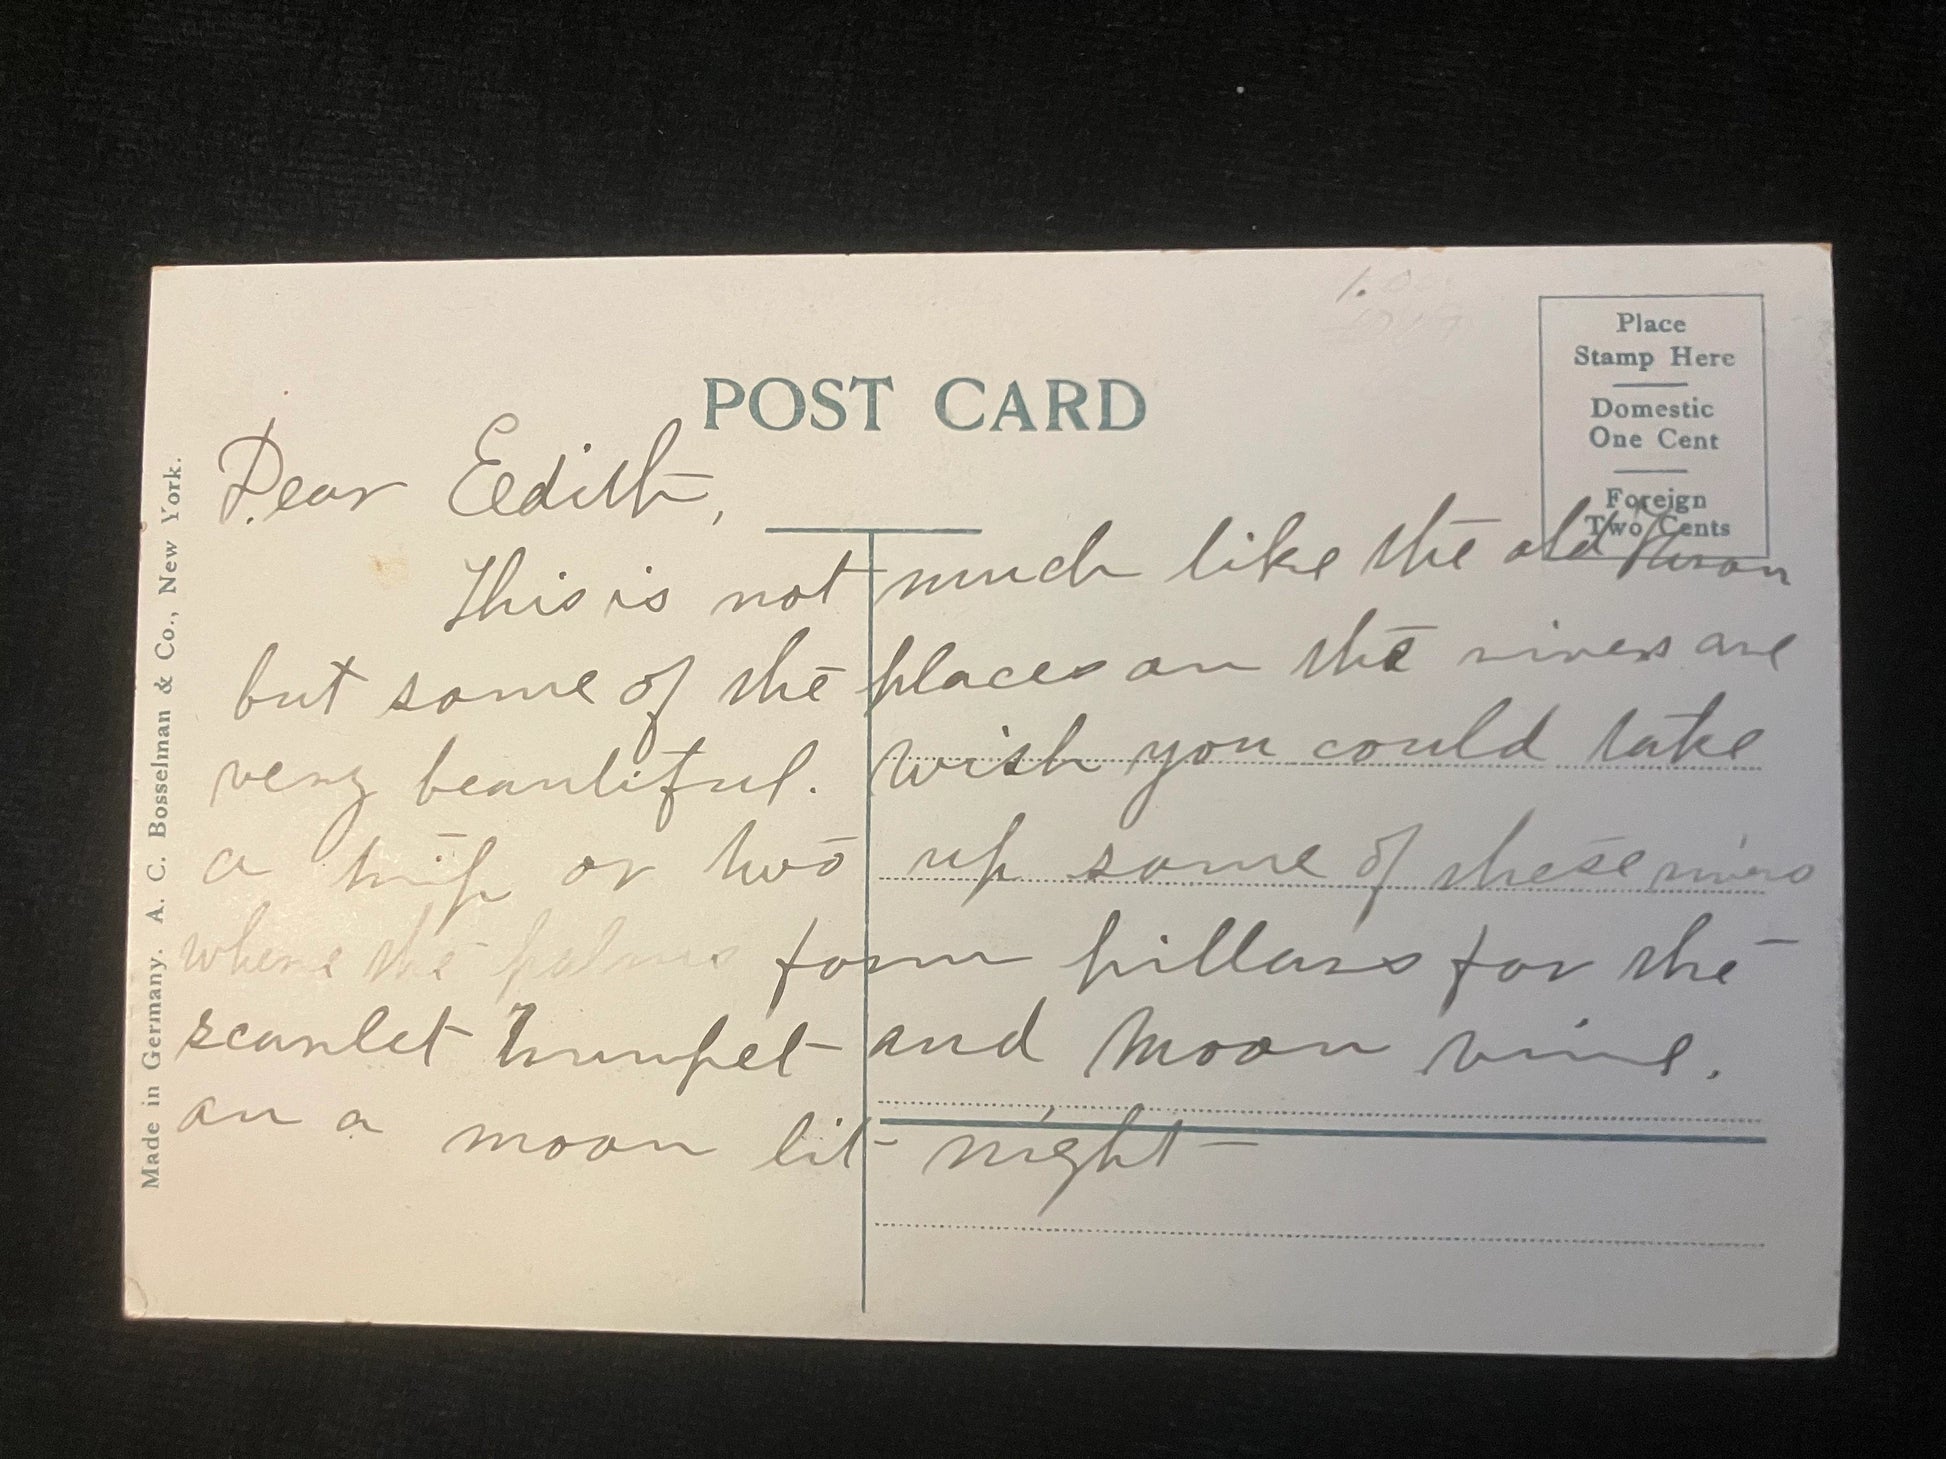 1.00
Place
Stamp Here
Domestic
One Cent
Foreign
Two Cents
POST CARD
Made in Germany. A. C. Bosselman & Co., New York.
Dear Eedith,
This is not much like the old Huron
but some of the places on the rivers are
very beautiful. wish you could take
a trip or two up some of these rivers
where the palms form pillars for the
scarlet Trumpet and Moon vine.
on a moon lit night